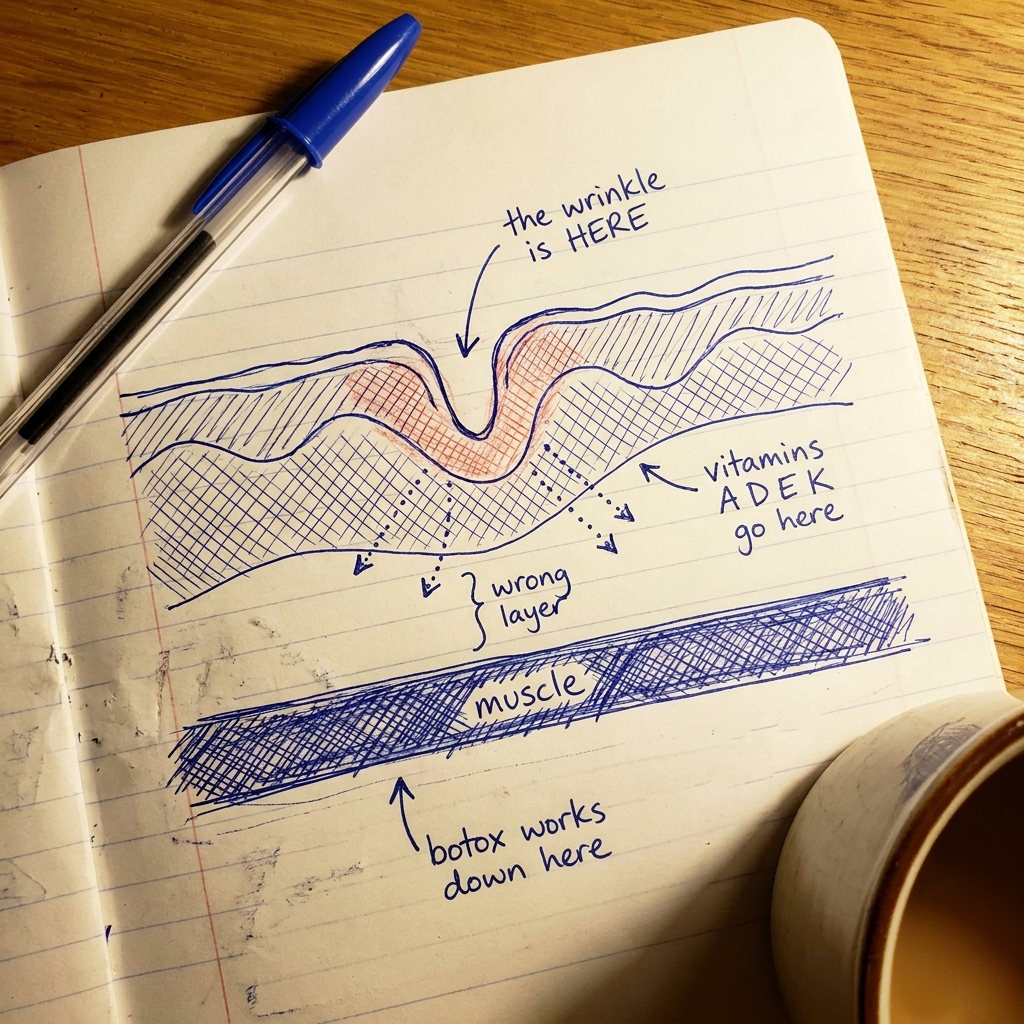 the wrinkle
is HERE
vitamins
A D E K
go here
wrong
layer
muscle
botox works
down here